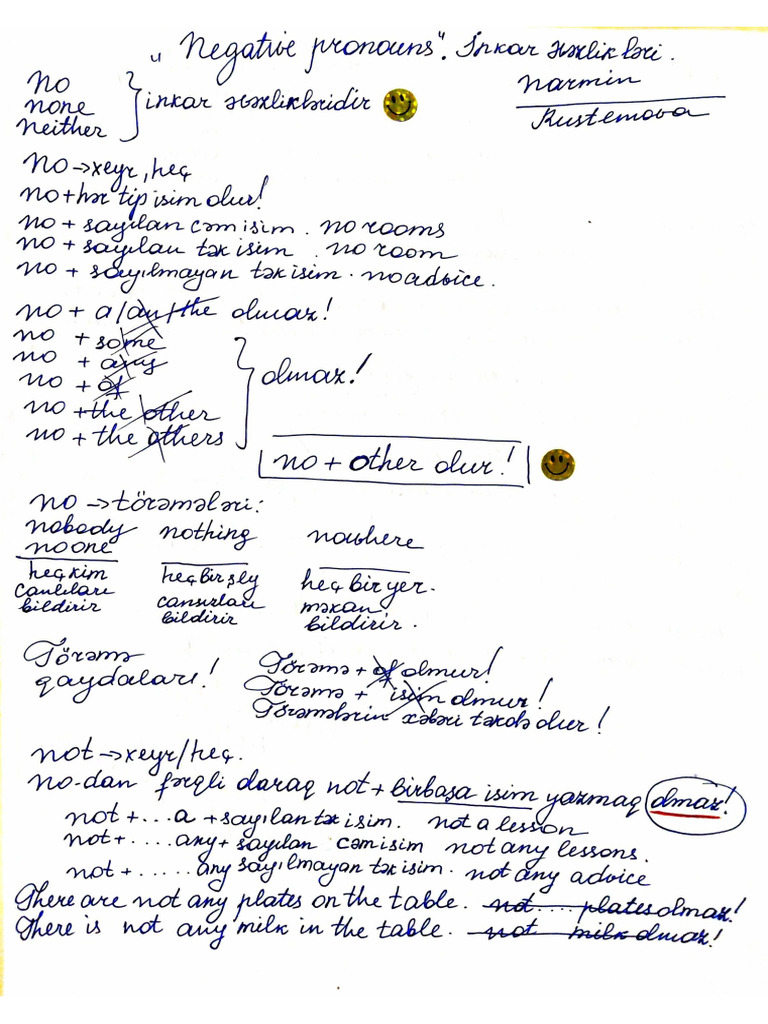 „Negative pronouns". İnkar əvəzlikləri.
no
none
neither
inkar əvəzlikləridir
Narmin
Rustemova
no → xeyr, heç
no + hər tip isim olur!
no + sayılan cəm isim. no rooms
no + sayılan tək isim. no room
no + sayılmayan tək isim. no advice.
no + a/an/the olmaz!
no + some
no + any
no + of
no + the other
no + the others
olmaz!
no + other olur!
no → törəmələri:
nobody nothing nowhere
no one
heç kim heç bir şey heç bir yer.
canlıları cansızları məkan
bildirir bildirir bildirir.
Törəmə
qaydaları!
Törəmə + of olmur!
Törəmə + isim olmur!
Törəmələrin xəbəri təkdə olur!
not → xeyr/heç.
no-dan fərqli olaraq not + birbaşa isim yazmaq olmaz!
not + ... a + sayılan tək isim. not a lesson
not + .... any + sayılan cəm isim not any lessons.
not + ..... any sayılmayan tək isim. not any advice
There are not any plates on the table. not .... plates olmaz!
There is not any milk in the table. not milk olmaz!